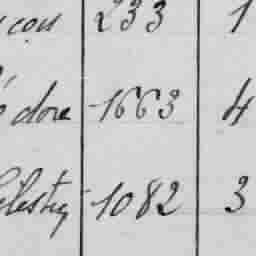 con 233 1
dore 1663 4
élestin 1082 3